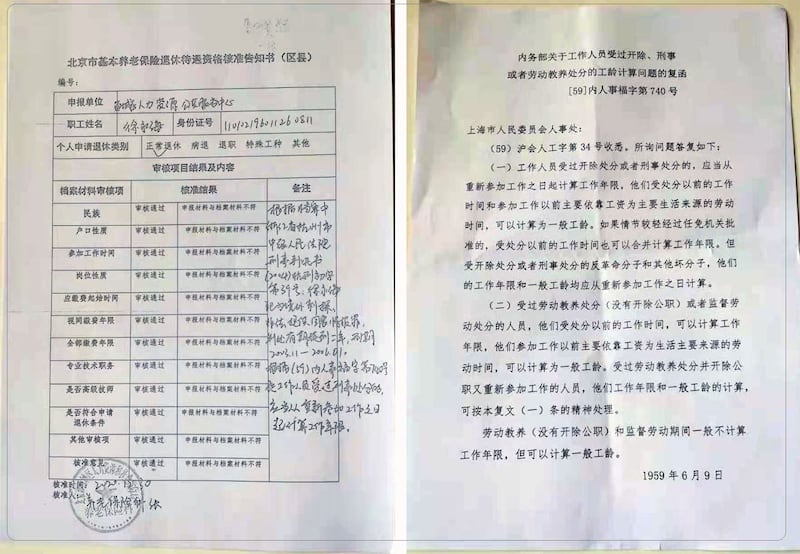 北京市基本养老保险退休待遇资格核准告知书（区县）
编号：
申报单位
职工姓名 徐永海 身份证号
个人申请退休类别 正常退休 病退 退职 特殊工种 其他
审核项目结果及内容
档案材料审核项 核准结果 备注
民族 审核通过 申报材料与档案材料不符
户口性质 审核通过 申报材料与档案材料不符
参加工作时间 审核通过 申报材料与档案材料不符
岗位性质 审核通过 申报材料与档案材料不符
应缴费起始时间 审核通过 申报材料与档案材料不符
视同缴费年限 审核通过 申报材料与档案材料不符
全部缴费年限 审核通过 申报材料与档案材料不符
专业技术职务 审核通过 申报材料与档案材料不符
是否高级技师 审核通过 申报材料与档案材料不符
是否符合申请
退休条件 审核通过 申报材料与档案材料不符
其他审核项 审核通过 申报材料与档案材料不符
核准意见 审核通过 申报材料与档案材料不符
根据档案中
浙江省杭州市
中级人民法院
刑事判决书
应当从重新参加工作之日
起计算工作年限。
核准时间：
核准人：
内务部关于工作人员受过开除、刑事
或者劳动教养处分的工龄计算问题的复函
[59]内人事福字第 740 号
上海市人民委员会人事处：
（59）沪会人工字第 34 号收悉。所询问题答复如下：
（一）工作人员受过开除处分或者刑事处分的，应当从
重新参加工作之日起计算工作年限，他们受处分以前的工作
时间和参加工作以前主要依靠工资为主要生活来源的劳动
时间，可以计算为一般工龄。如果情节较轻经过任免机关批
准的，受处分以前的工作时间也可以合并计算工作年限。但
受开除处分或者刑事处分的反革命分子和其他坏分子，他们
的工作年限和一般工龄均应从重新参加工作之日计算。
（二）受过劳动教养处分（没有开除公职）或者监督劳
动处分的人员，他们受处分以前的工作时间，可以计算工作
年限，他们参加工作以前主要依靠工资为生活主要来源的劳
动时间，可以计算为一般工龄。受过劳动教养处分并开除公
职又重新参加工作的人员，他们工作年限和一般工龄的计算，
可按本复文（一）条的精神处理。
劳动教养（没有开除公职）和监督劳动期间一般不计算
工作年限，但可以计算一般工龄。
1959 年 6 月 9 日